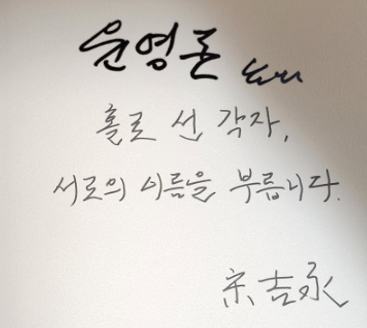 윤영론 님께
홀로 선 각자,
서로의 이름을 부릅니다.
宋吉永